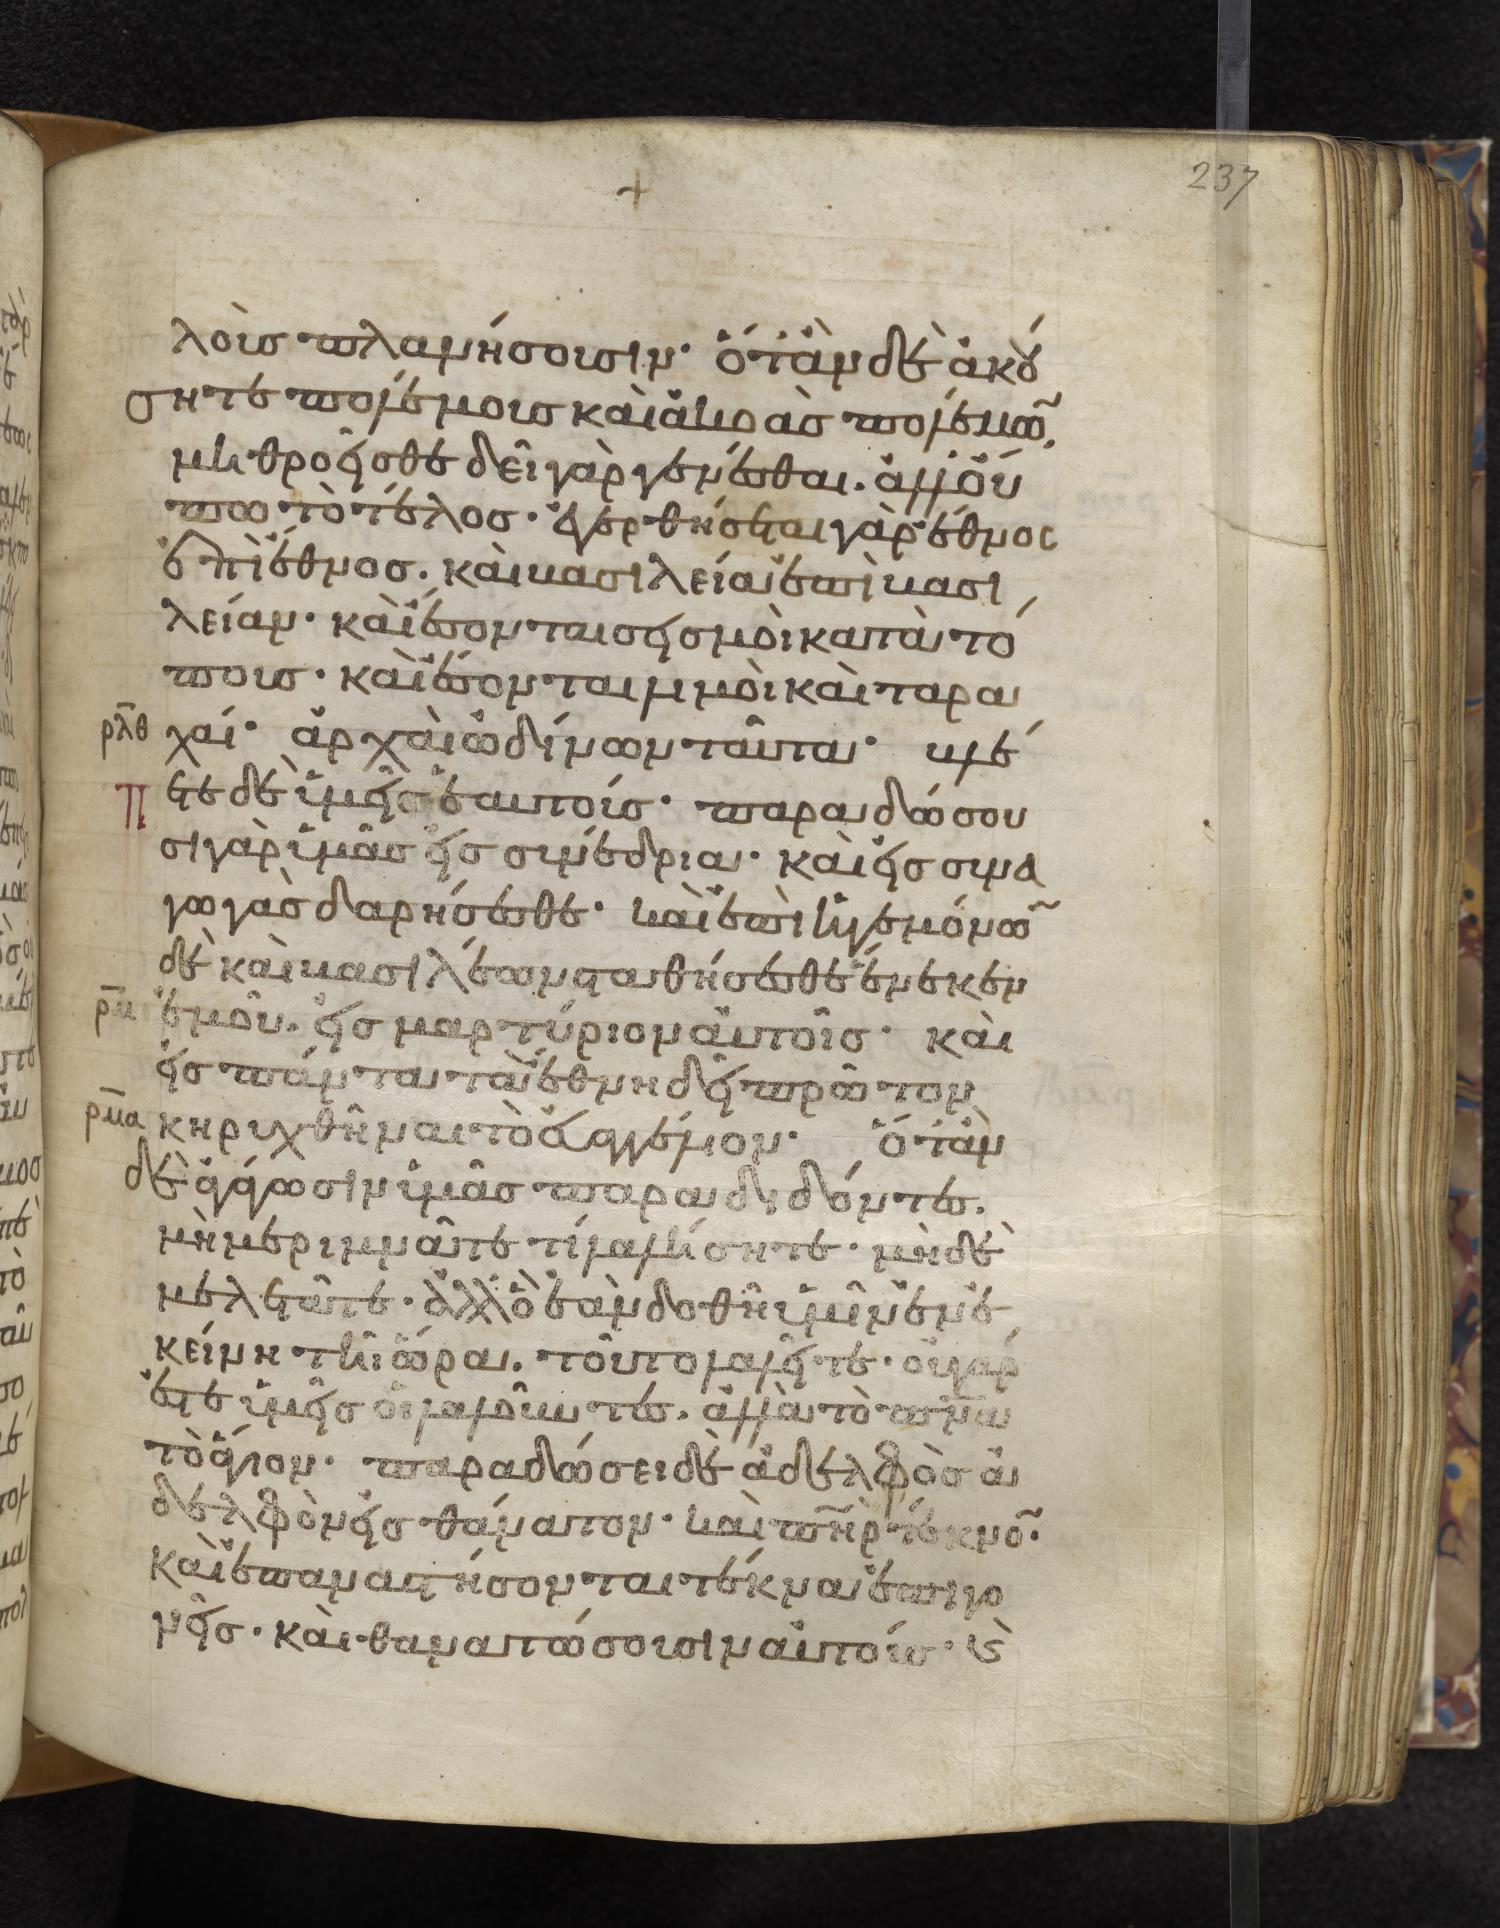 237
λοὺσ πλανήσουσιν· ὅταν δὲ ἀκού
σητε πολέμουσ καὶ ἀκοὰσ πολέμω̃,
μὴ θροεῖσθε δεῖ γὰρ γενέσθαι. ἀλλ οὔ
πω τὸ τέλοσ· ἐγερθήσεται γὰρ ἔθνος
ἐπὶ ἔθνοσ. καὶ βασιλεία ἐπὶ βασι
λείαν· καὶ ἔσονται σεισμοὶ κατὰ τό
πουσ· καὶ ἔσονται λιμοὶ καὶ ταρα
ρλθ χαί· ἀρχαὶ ὠδίνων ταῦτα· βλέ
π ετε δὲ ὑμεῖσ ἑαυτούσ· παραδώσου
σι γὰρ ὑμᾶσ εἰσ συνέδρια· καὶ εἰσ συνα
γωγὰσ δαρήσεσθε· καὶ ἐπὶ ἡγεμόνω̃
δὲ καὶ βασιλέων σταθήσεσθε ἕνεκεν
ρμ ἐμοῦ. εἰσ μαρτύριον αὐτοῖσ· καὶ
εἰσ πάντα τὰ ἔθνη δεῖ πρῶτον
ρμα κηρυχθῆναι τὸ εὐαγγέλιον· ὅταν
δὲ ἄγωσιν ὑμᾶσ παραδιδόντεσ.
μὴ μεριμνᾶτε τί λαλήσητε· μὴδὲ
μελετᾶτε· ἀλλ ὃ ἐὰν δοθῆ ὑμῖν ἐν ἐ
κείνη τῆ ὥρα. τοῦτο λαλεῖτε· οὐ γάρ
ἐστε ὑμεῖσ οἱ λαλοῦντεσ. ἀλλὰ τὸ πν̅α
τὸ ἅγιον· παραδώσει δὲ ἀδελφὸσ ἀ
δελφὸν εἰσ θάνατον· καὶ πη̅ρ τέκνο̃·
καὶ ἐπαναστήσονται τέκνα ἐπὶ γο
νεῖσ· καὶ θανατώσουσιν αὐτούσ· κ̀